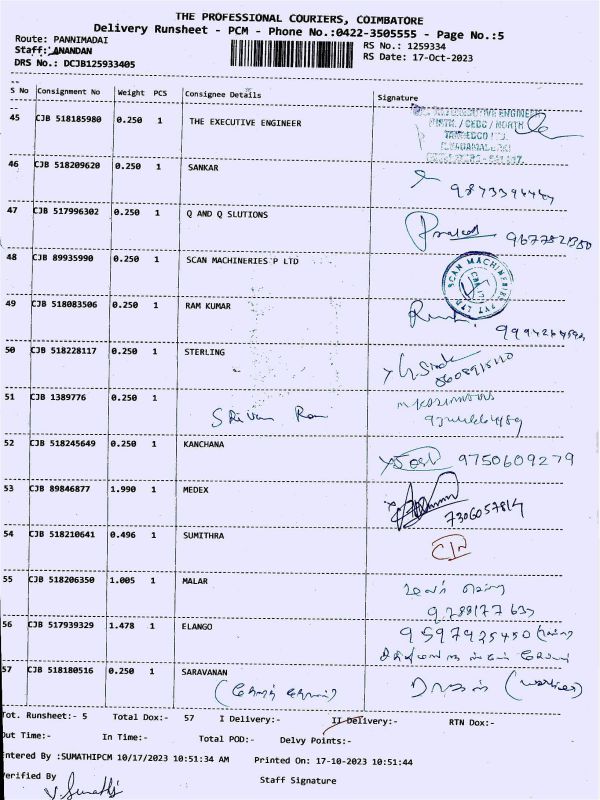 THE PROFESSIONAL COURIERS, COIMBATORE
Delivery Runsheet - PCM - Phone No.:0422-3505555 - Page No.:5
Route: PANNIMADAI
RS No.: 1259334
Staff: ANANDAN
RS Date: 17-Oct-2023
DRS No.: DCJB125933405
S No Consignment No Weight PCS Consignee Details Signature
45 CJB 518185980 0.250 1 THE EXECUTIVE ENGINEER
46 CJB 518209620 0.250 1 SANKAR
47 CJB 517996302 0.250 1 Q AND Q SLUTIONS
48 CJB 89935990 0.250 1 SCAN MACHINERIES P LTD
SCAN MACHINERIES PVT LTD
49 CJB 518083506 0.250 1 RAM KUMAR
50 CJB 518228117 0.250 1 STERLING
8608915110
51 CJB 1389776 0.250 1
52 CJB 518245649 0.250 1 KANCHANA
9750609279
53 CJB 89846877 1.990 1 MEDEX
7306057814
54 CJB 518210641 0.496 1 SUMITHRA
55 CJB 518206350 1.005 1 MALAR
56 CJB 517939329 1.478 1 ELANGO
9597925450
57 CJB 518180516 0.250 1 SARAVANAN
Tot. Runsheet:- 5 Total Dox:- 57 I Delivery:- II Delivery:- RTN Dox:-
Out Time:- In Time:- Total POD:- Delvy Points:-
Entered By :SUMATHIPCM 10/17/2023 10:51:34 AM Printed On: 17-10-2023 10:51:44
Verified By
Staff Signature
V. Sumathi